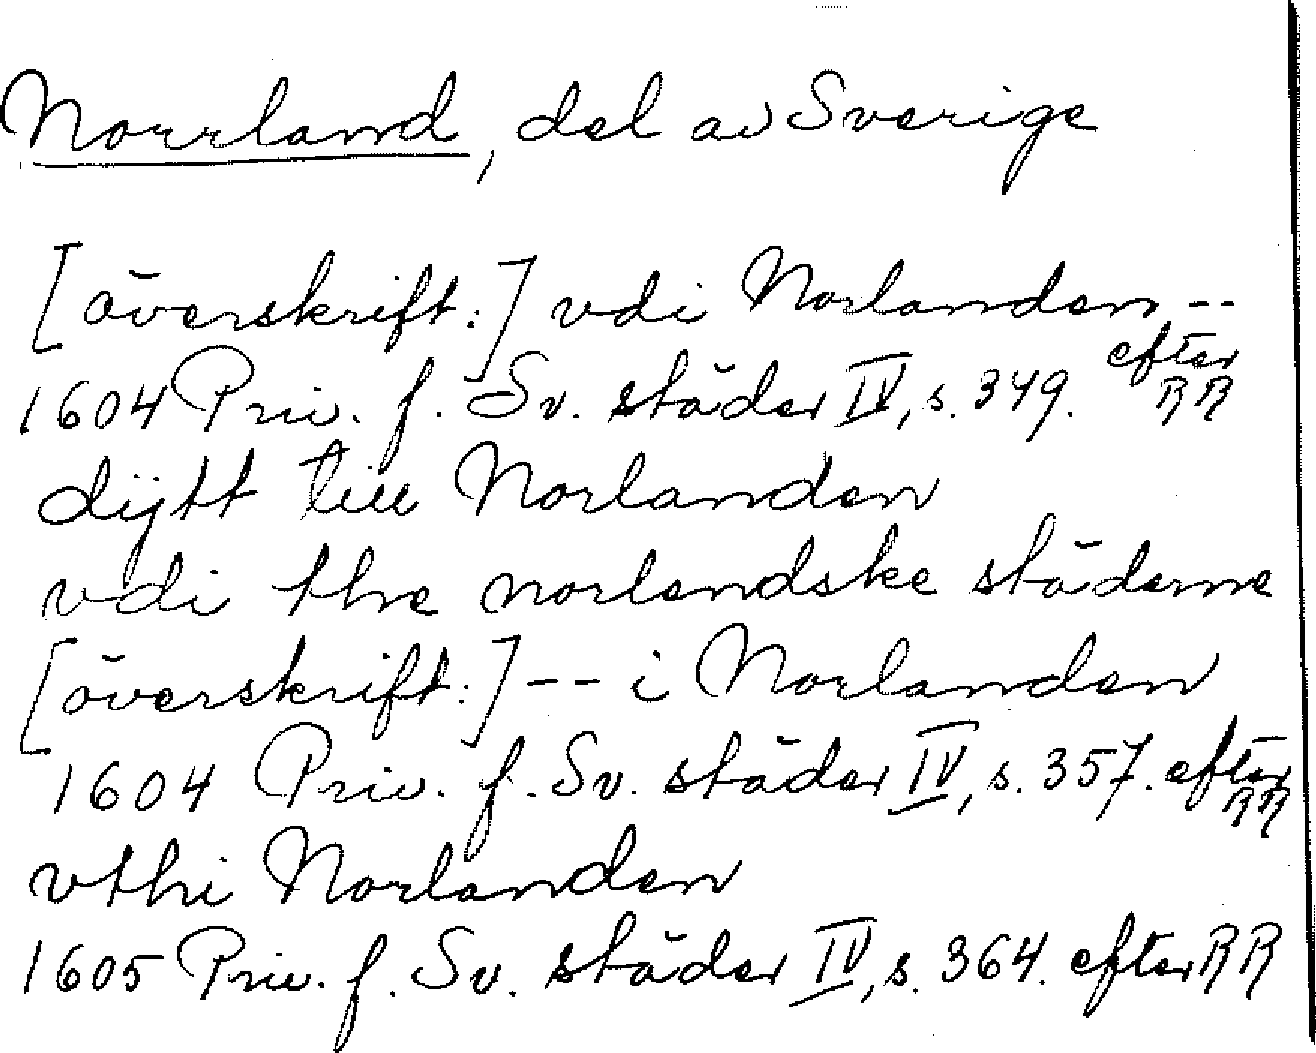 Norrland, del av Sverige
[överskrift:] vdi Norlanden --
1604 Priv. f. Sv. städer IV, s. 349. efter RR
dijtt till Norlanden
vdi the norlendske städerne
[överskrift:] -- i Norlanden
1604 Priv. f. Sv. städer IV, s. 357. efter RR
vthi Norlanden
1605 Priv. f. Sv. städer IV, s. 364. efter RR